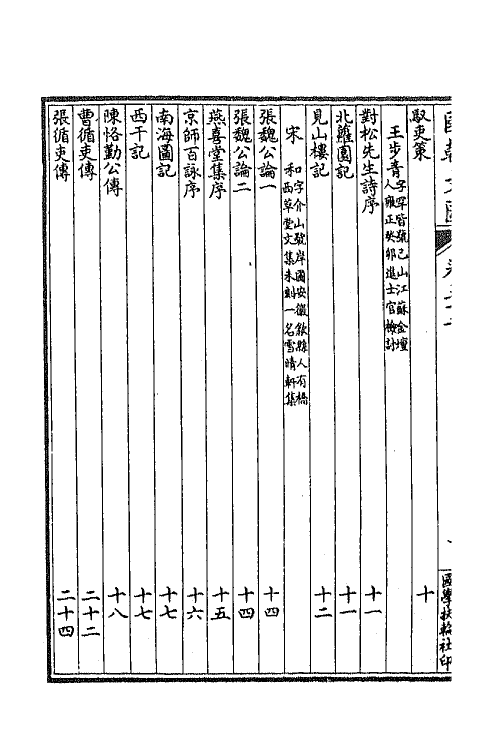 馭吏策 十
王步青 字罕皆號己山江蘇金壇人雍正癸卯進士官檢討
對松先生詩序 十一
北籬園記 十一
見山樓記 十二
宋和 字介山號岸圃安徽歙縣人有橋西草堂文集未刻一名雪晴軒集
張魏公論一 十四
張魏公論二 十四
燕喜堂集序 十五
京師百詠序 十六
南海圖記 十七
西干記 十七
陳恪勤公傳 十八
曹循吏傳 二十二
張循吏傳 二十四
國學扶輪社印